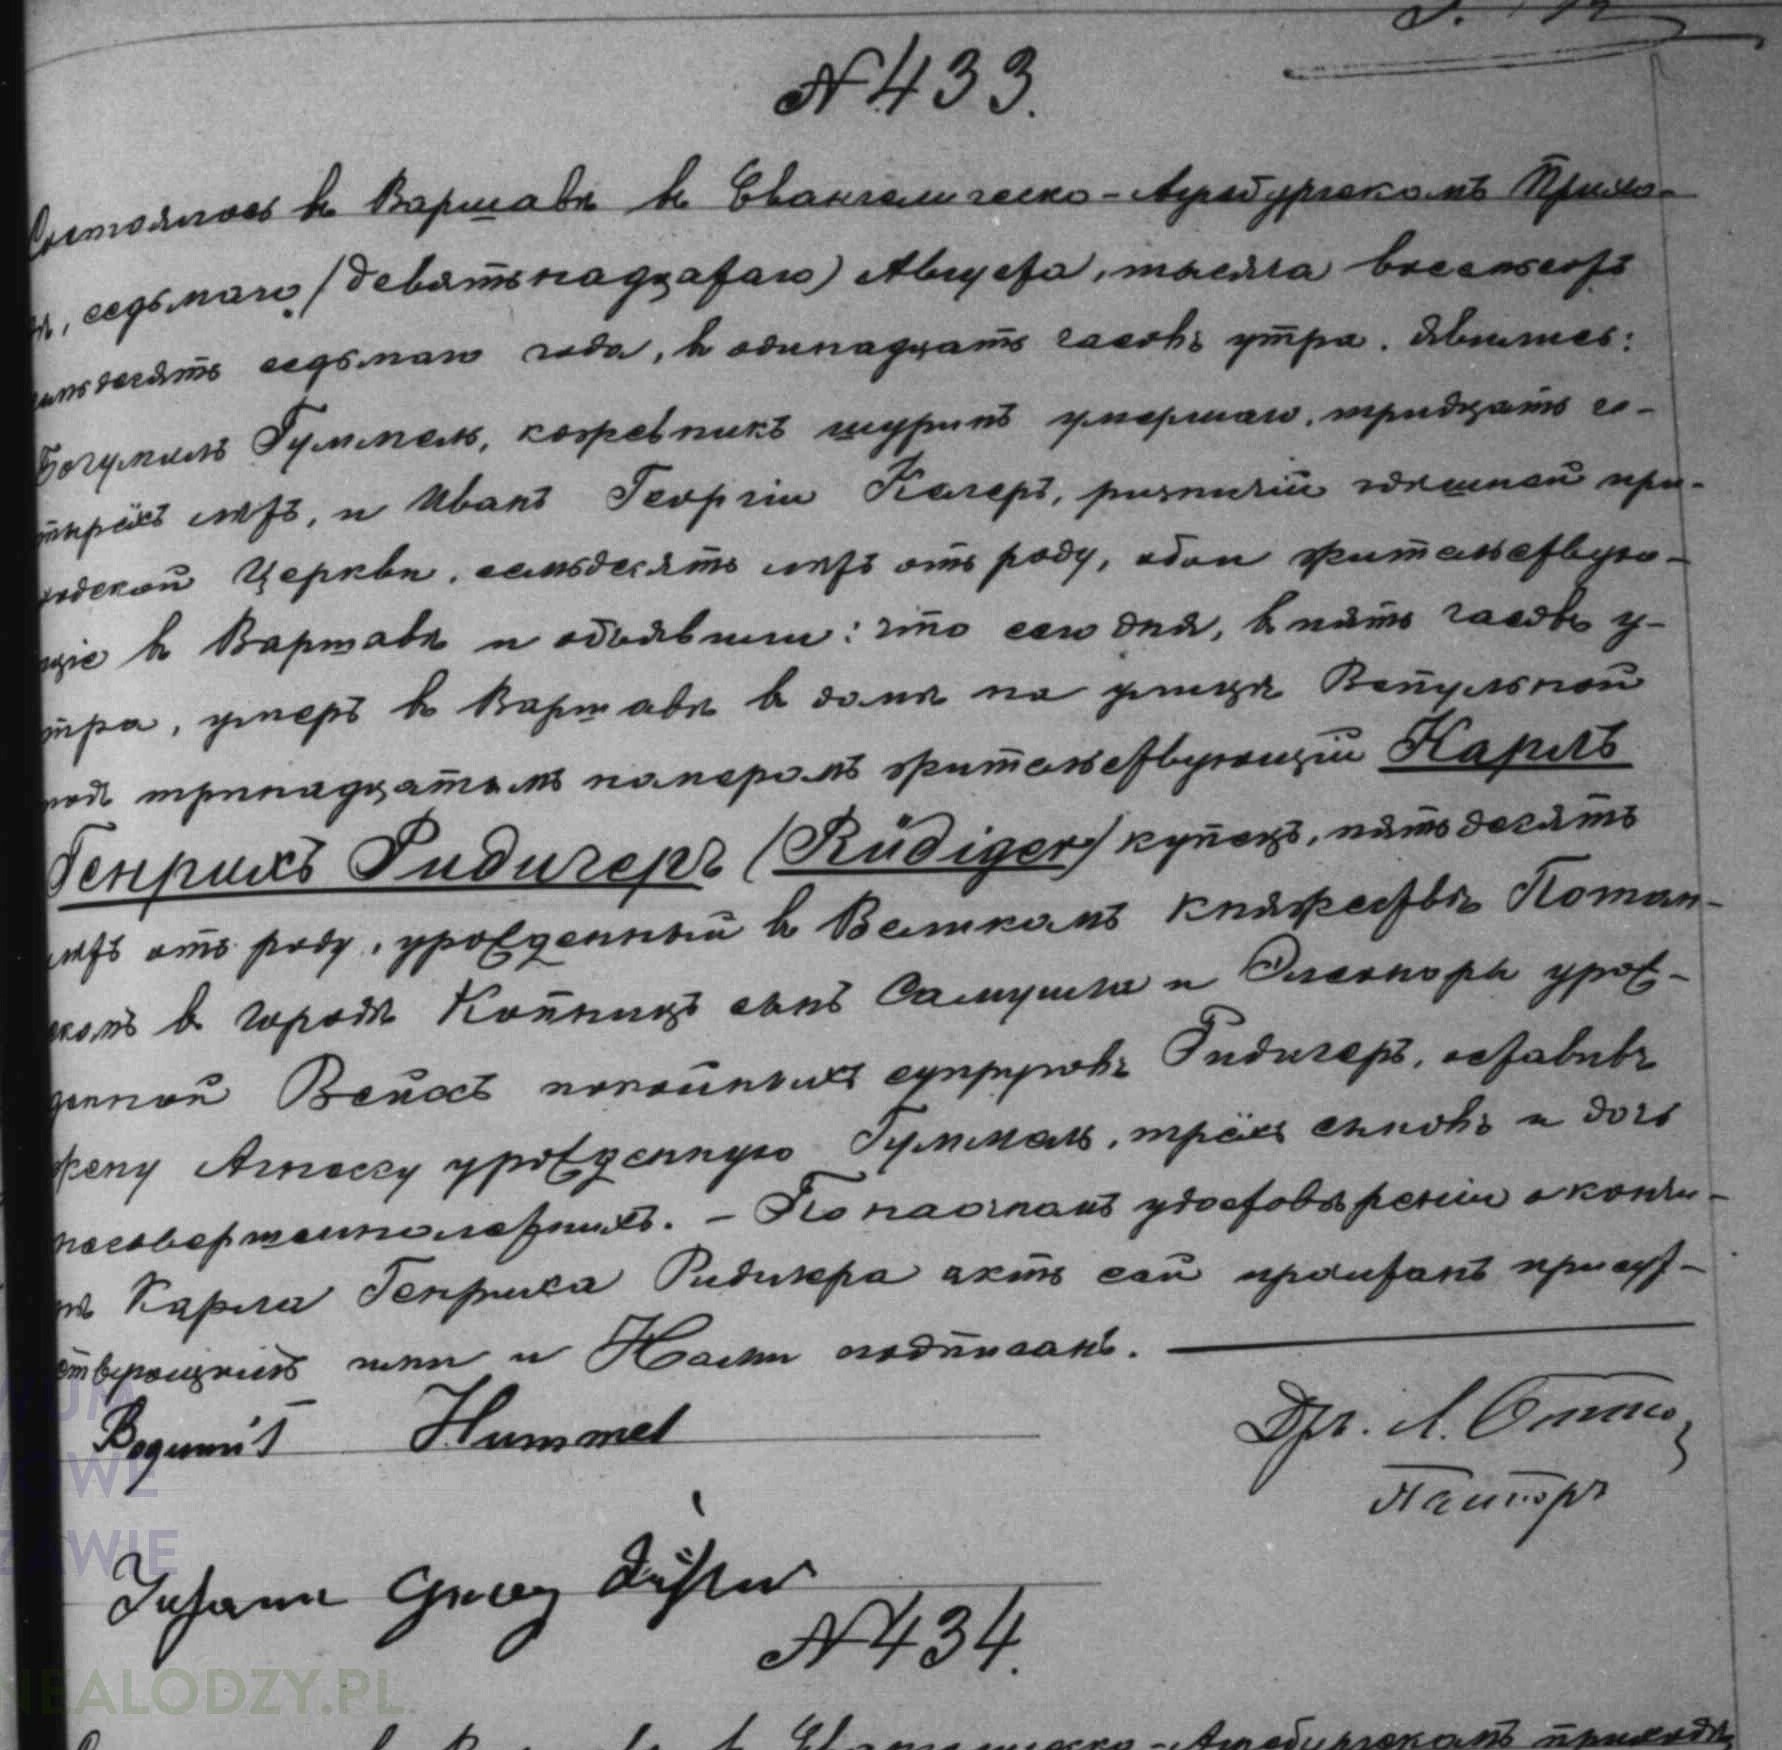 № 433.
Состоялось въ Варшавѣ въ Евангелическо-Аугсбургскомъ Прихо-
дѣ, седьмаго (девятьнадцатаго) Августа, тысяча восемьсотъ
десятъ седьмаго года, въ одинадцать часовъ утра. Явились:
Богумилъ Гуммель, кожевникъ шуринъ умершаго, тридцать че-
тырёхъ лѣтъ, и Иванъ Георгій ризничій здѣшней при-
ходской Церкви, семьдесятъ лѣтъ отъ роду, обои жительствую-
щіе въ Варшавѣ и объявили: что сего дня, въ пять часовъ у-
тра, умеръ въ Варшавѣ въ домѣ на улицѣ Вспульной
подъ тринадцатымъ номеромъ жительствующій Карлъ
Генрихъ Ридигеръ (Rüdiger) купецъ, пятьдесятъ
лѣтъ отъ роду, урожденный въ Великомъ Княжествѣ Познан-
скомъ въ городѣ Копницъ сынъ Самуила и Элеоноры урож-
денной покойныхъ супруговъ Ридигеръ, оставивъ
жену Агнесу урожденную Гуммель, трёхъ сыновъ и дочь
несовершеннолетнихъ. – По настномъ удостовѣреніи о кончи-
нѣ Карла Генриха Ридигера актъ сей прочитанъ присут-
ствующимъ ими и Нами подписанъ.
Bogumił Hummel
Др. Л. Отто,
Пасторъ
Johann Georg
№ 434.
Евангелическо-Аугсбургскомъ приходѣ
NEALODZY.PL